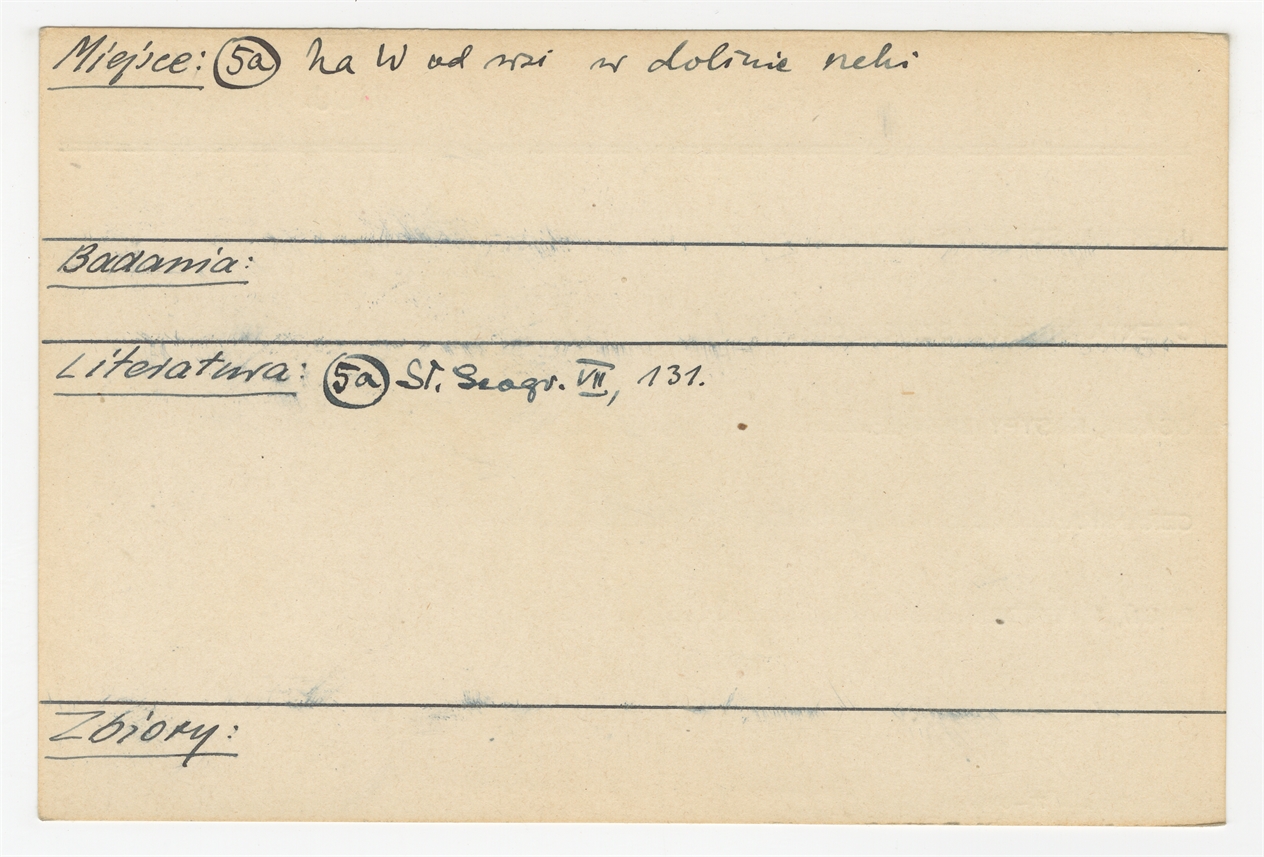 Miejsce: 5a na W od wsi w dolinie rzeki
Badania:
Literatura: 5a Sł. Geogr. VII, 131.
Zbiory: